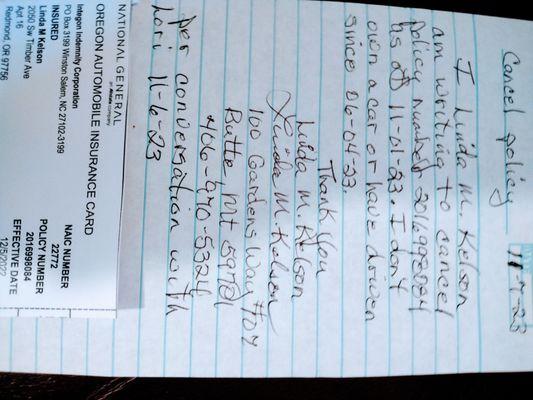 Cancel policy 11-7-23
I Linda M. Kelson
am writing to cancel
policy number 2016998084
as of 11-01-23. I don't
own a car or have driven
since 06-04-23.
Thank you
Linda M. Kelson
Linda M. Kelson
100 Gardens Way
Butte Mt 59701
406-490-5324
per conversation with
Lori 11-6-23
NATIONAL GENERAL
an Allstate company
OREGON AUTOMOBILE INSURANCE CARD
Integon Indemnity Corporation
PO Box 3199 Winston Salem, NC 27102-3199
INSURED
Linda M Kelson
2050 Sw Timber Ave
Apt 16
Redmond, OR 97756
NAIC NUMBER
22772
POLICY NUMBER
2016998084
EFFECTIVE DATE
12/5/2022